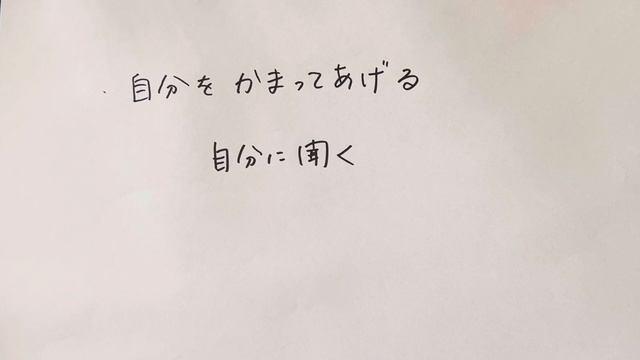 ・自分をかまってあげる
自分に聞く